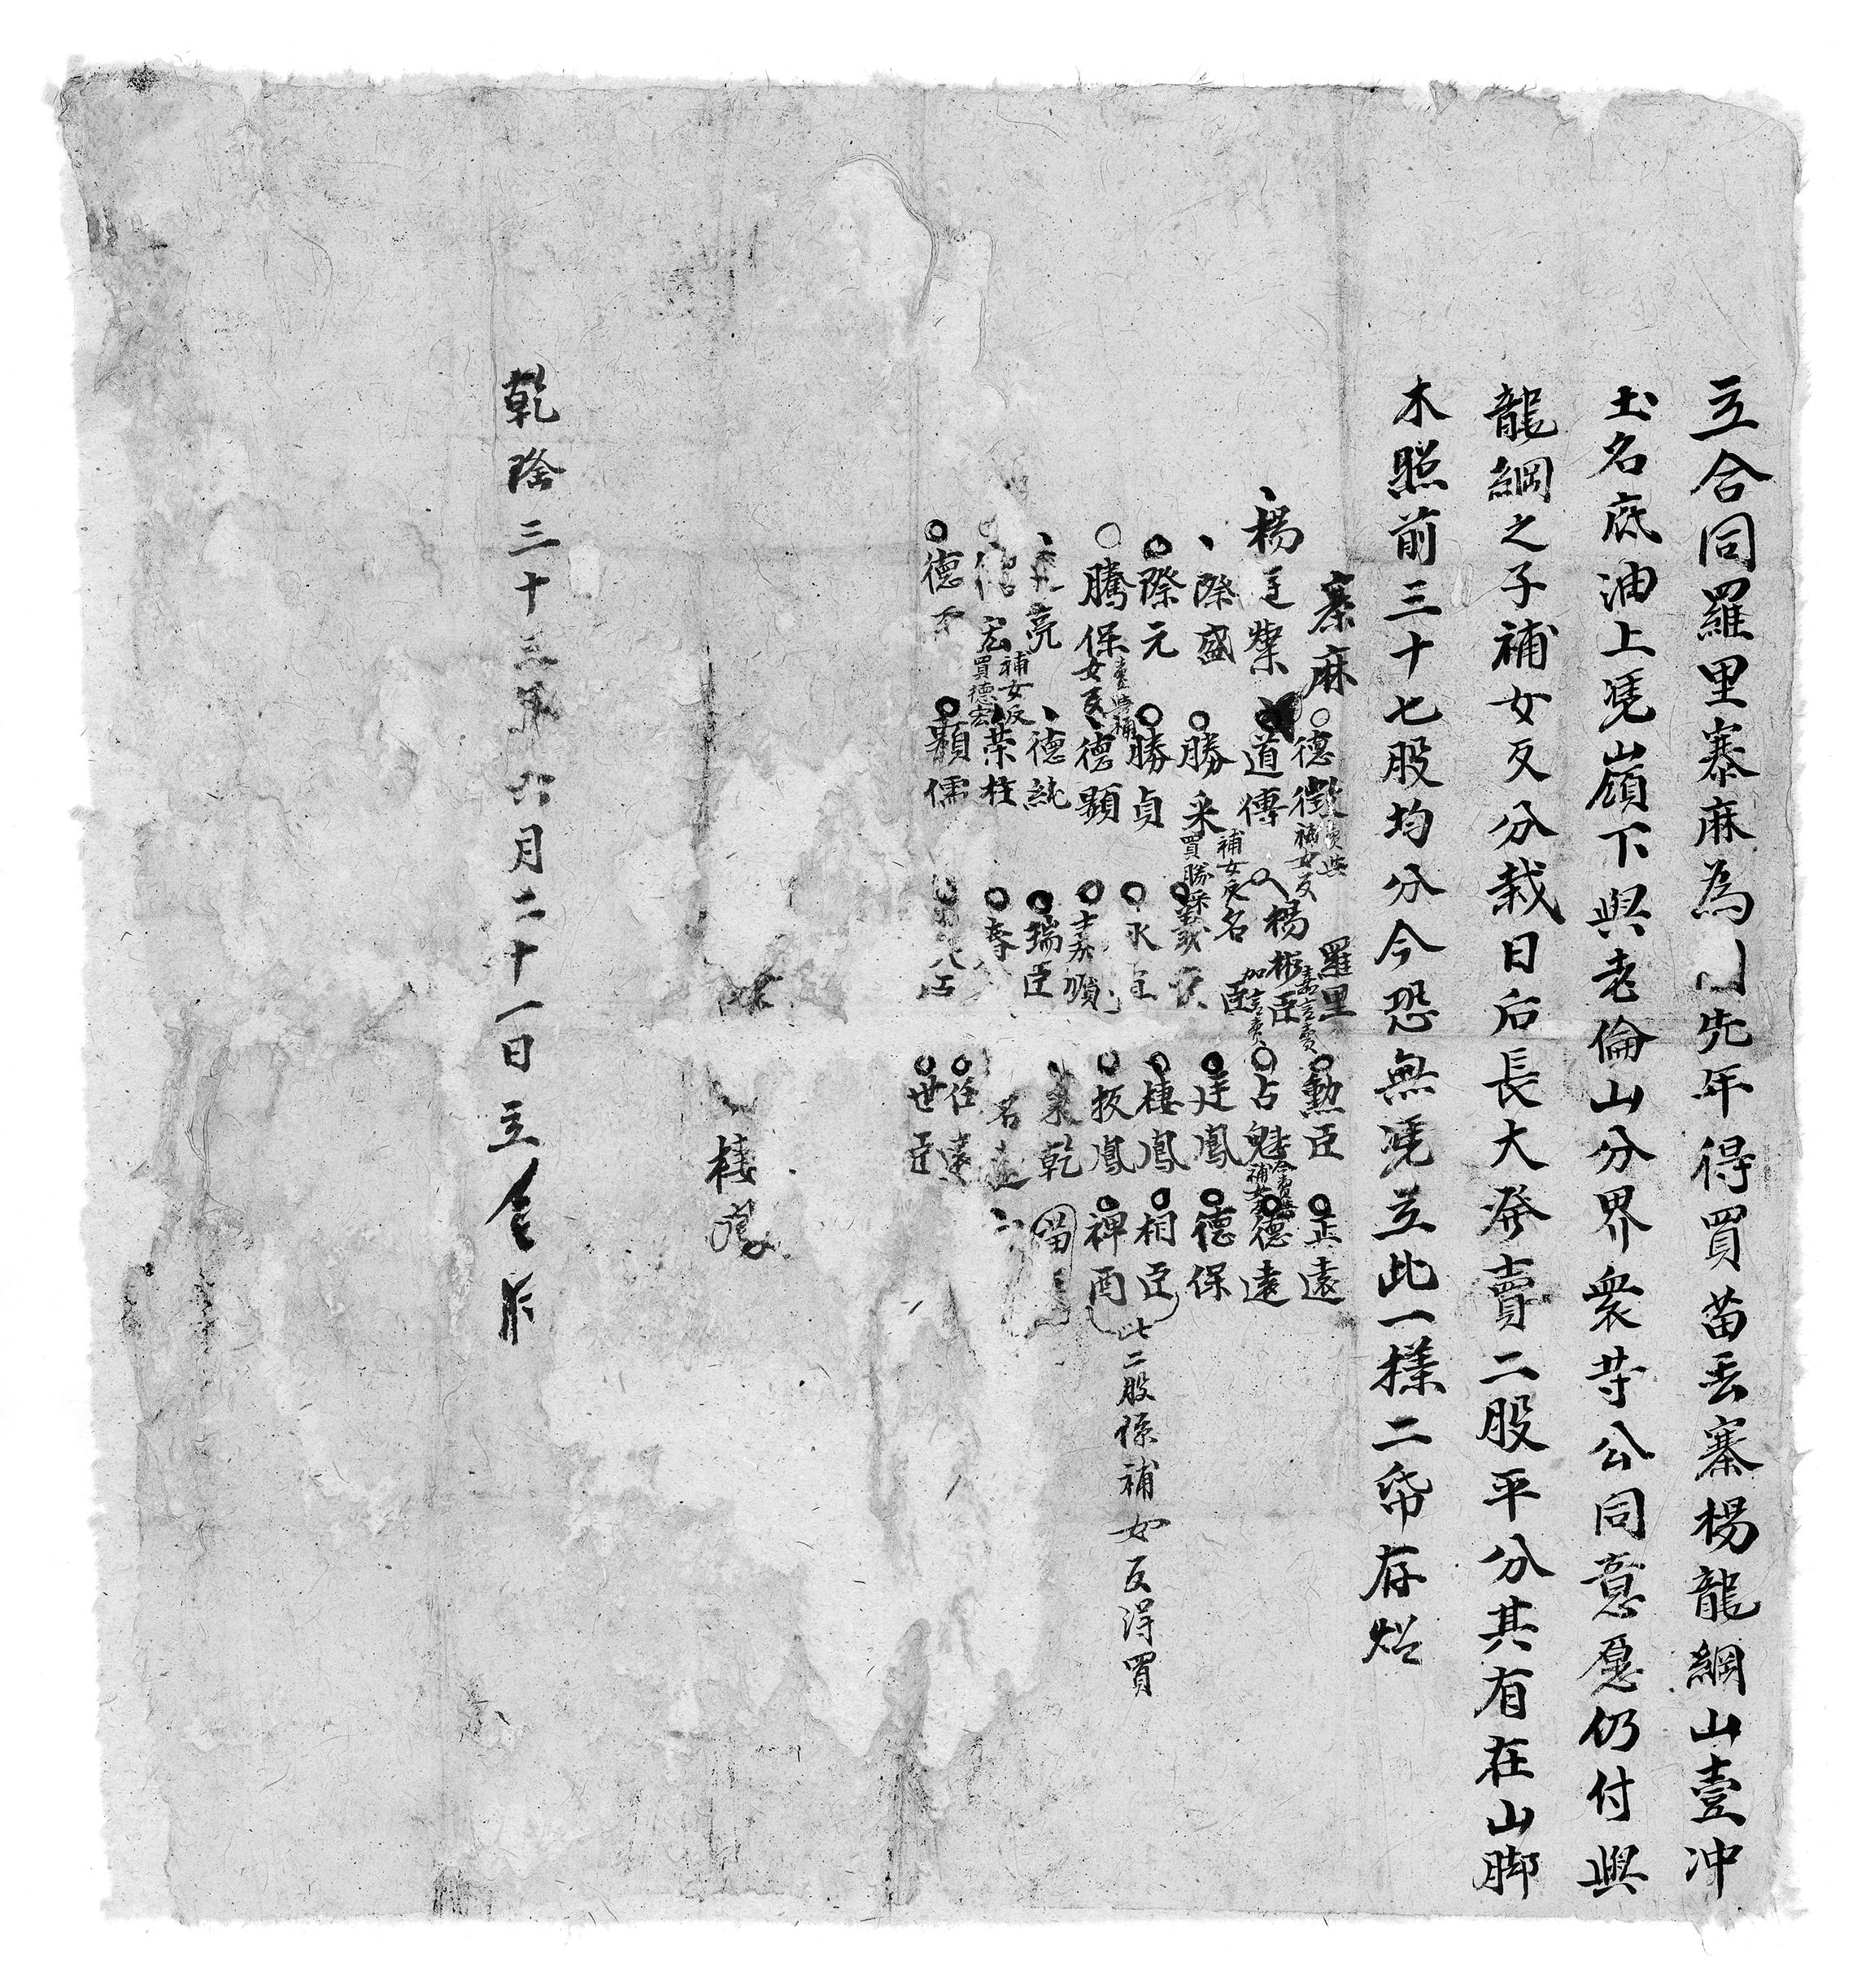 立合同羅里寨麻為因先年得買苗丟寨楊龍綱山壹冲
土名底油上凴嶺下與老倫山分界衆䒭公同意愿仍付與
龍綱之子補女反分栽日后長大発賣二股平分其有在山脚
木照前三十七股均分今恐無凴立此一樣二帋存炤
寨麻
德徵
補女反
羅里
勲臣
正遠
楊廷
道傳
楊彬臣
占魁
德遠
際盛
勝采
補女反
買勝采
名臣
廷鳳
德保
際元
勝貞
永
棲鳳
相臣
騰保
女反
德顯
嘉順
扳鳳
禆酉
此二股係補女反得買
亮
德純
瑞臣
乾
宏
補女反
買德宏
榮柱
春
名遠
任遠
德
顯儒
世臣
棲鳳
乾隆三十三年六月二十一日立合同